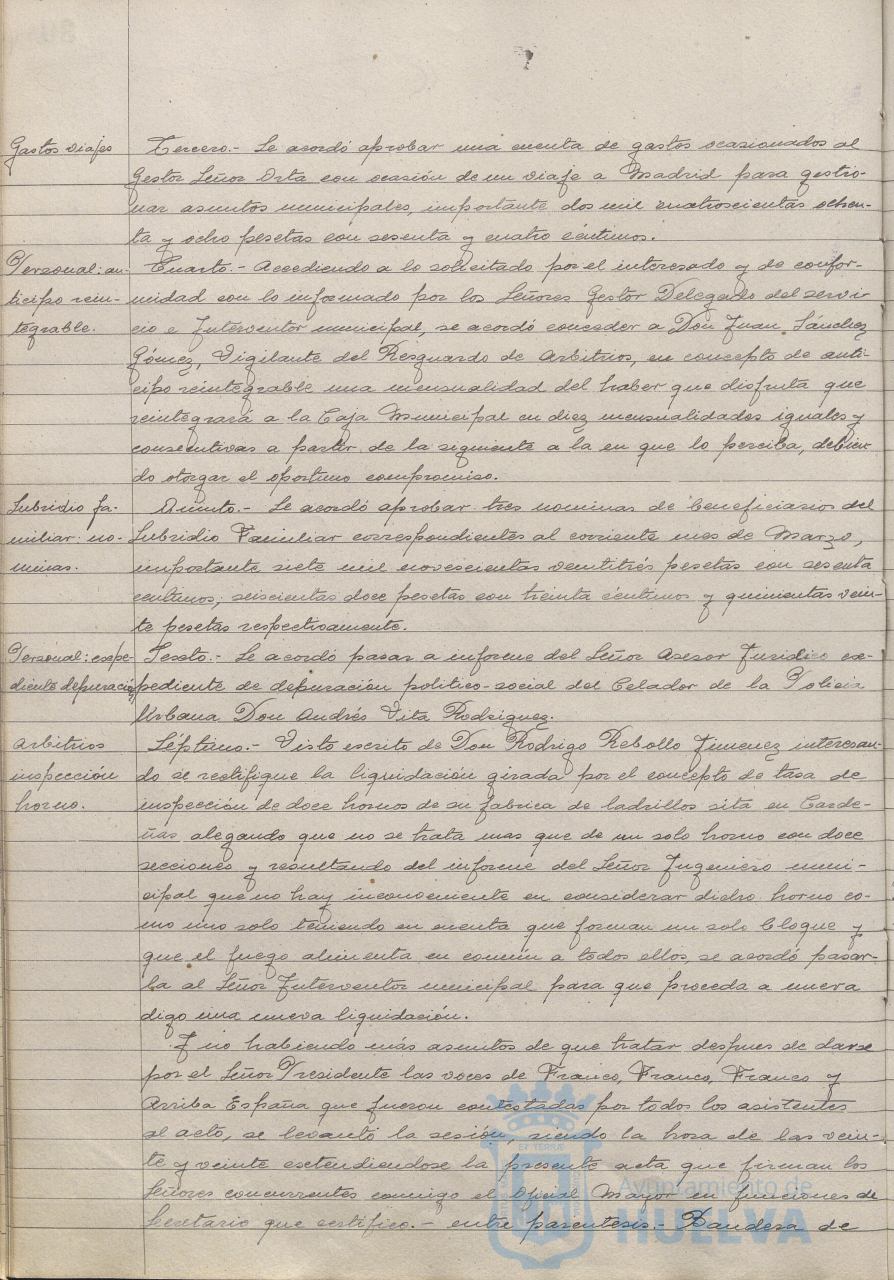 Gastos viajes
Tercero.- Se acordó aprobar una cuenta de gastos ocasionados al
Gestor Señor Orta con ocasión de un viaje a Madrid para gestio-
nar asuntos municipales, importante dos mil cuatroscientas ochen-
ta y ocho pesetas con sesenta y cuatro céntimos.
Personal: an-
ticipo rein-
tegrable.
Cuarto.- Accediendo a lo solicitado por el interesado y de confor-
midad con lo informado por los Señores Gestor Delegado del servi-
cio e Interventor municipal, se acordó conceder a Don Juan Sánchez
Gómez, Vigilante del Resguardo de Arbitrios, en concepto de anti-
cipo reintegrable una mensualidad del haber que disfruta que
reintegrará a la Caja Municipal en diez mensualidades iguales y
consecutivas a partir de la siguiente a la en que lo perciba, debien-
do otorgar el oportuno compromiso.
Subsidio fa-
miliar: no-
minas.
Quinto.- Se acordó aprobar tres nominas de beneficiarios del
Subsidio Familiar correspondientes al corriente mes de Marzo,
importante siete mil novescientas veintitrés pesetas con sesenta
centimos; seiscientas doce pesetas con treinta céntimos y quinientas vein-
te pesetas respectivamente.
Personal: expe-
diente depuración
Sexto.- Se acordó pasar a informe del Señor Asesor Juridico ex-
pediente de depuración politico-social del Celador de la Policia
Urbana Don Andrés Vita Rodriguez.
Arbitrios
inspección
horno.
Séptimo.- Visto escrito de Don Rodrigo Rebollo Jimenez interesan-
do se rectifique la liquidación girada por el concepto de tasa de
inspección de doce hornos de su fabrica de ladrillos sita en Carde-
ñas alegando que no se trata mas que de un solo horno con doce
secciones y resultando del informe del Señor Ingeniero muni-
cipal que no hay inconveniente en considerar dicho horno co-
mo uno solo teniendo en cuenta que forman un solo bloque y
que el fuego alimenta en común a todos ellos, se acordó pasar-
la al Señor Interventor municipal para que proceda a nueva
digo una nueva liquidación.
Y no habiendo más asuntos de que tratar despues de darse
por el Señor Presidente las voces de Franco, Franco, Franco y
Arriba España que fueron contestadas por todos los asistentes
al acto, se levantó la sesión, siendo la hora de las vein-
te y veinte extendiendose la presente acta que firman los
Señores concurrentes conmigo el Oficial Mayor en funciones de
Secretario que certifico.- entre parentesis.- Bandera de
Ayuntamiento de
HUELVA